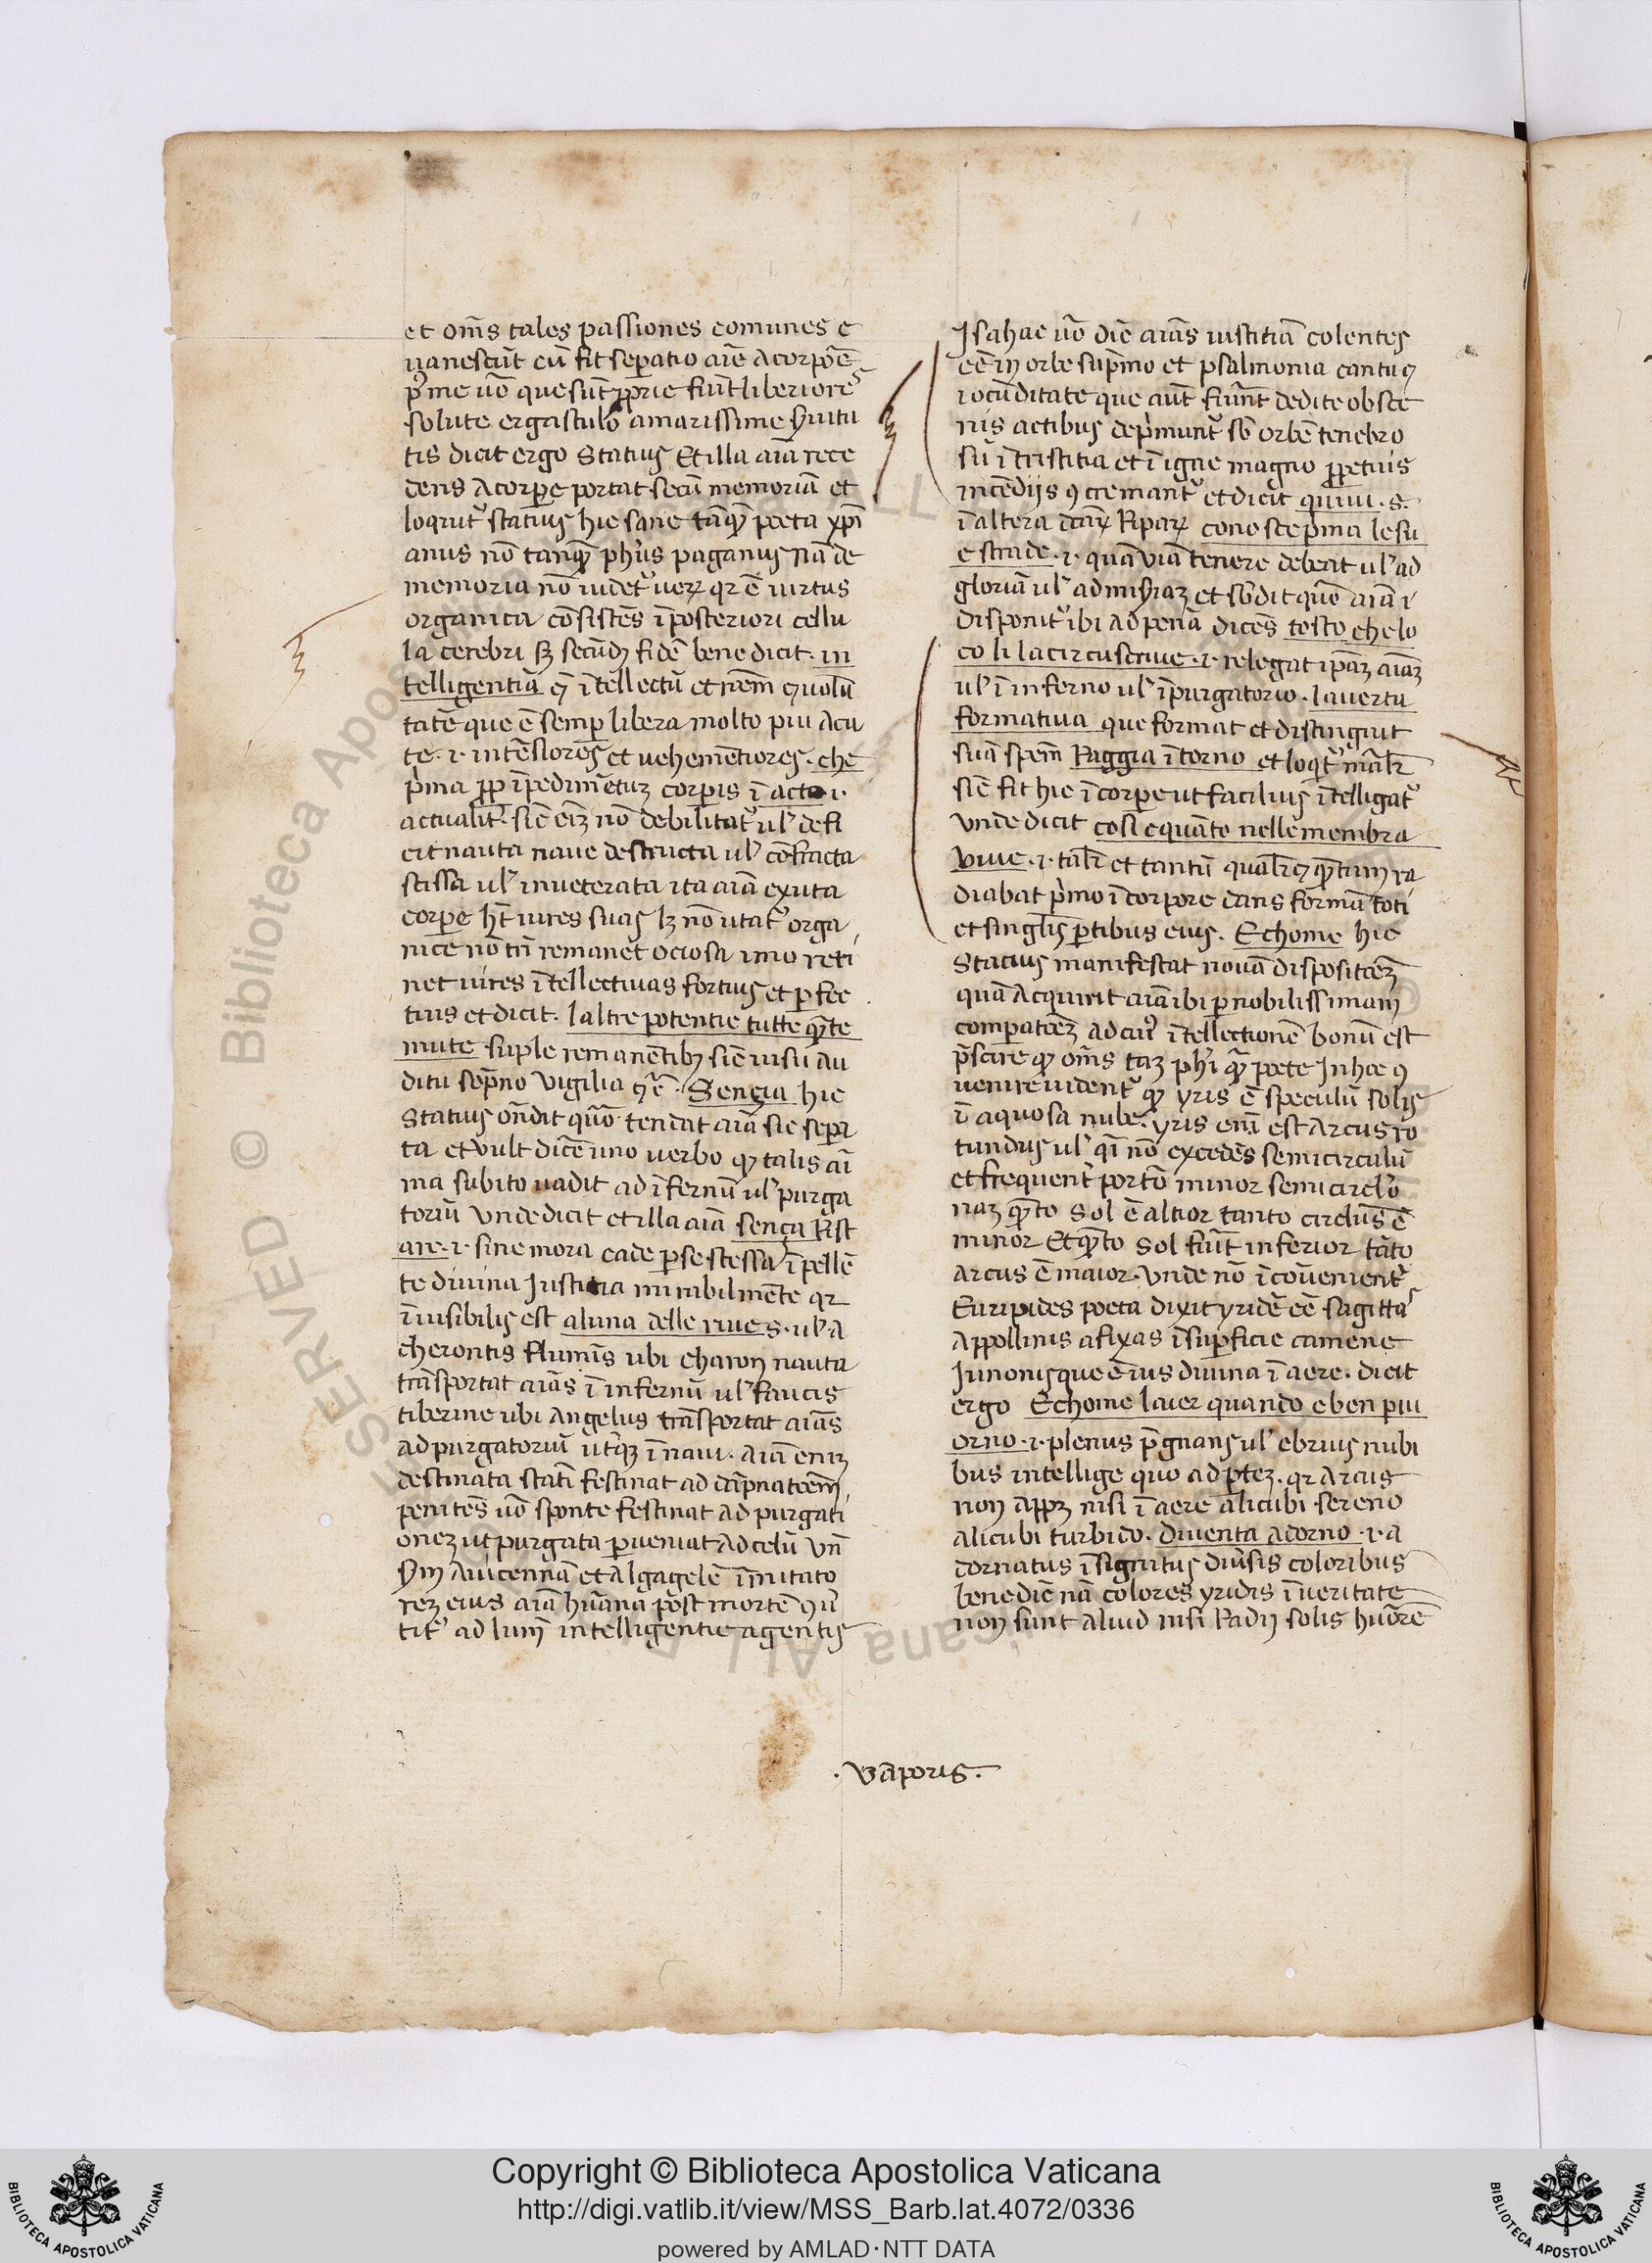 et om̄s tales passiones comunes e
uanescūt cū fit sep̄atio aīe a corpōe
p̍me u͞o que sūt p̱p̱rie fiūt liberiores
solute ergastulo amarissime ẜuitu
tis dicit ergo Statius Et illa aīa rece
dens a corpe portat secū memoriā et
loqr̄it̉ statius hic sane tāqꝫ poeta xp̄i
anus nō tanqꝫ ph̄us paganus nā de
memoria nō uidet̉ ueꝝ qr ē uirtus
organica cōsistēs ī posteriori cellu
la cerebri sꝫ secūdꝫ fidē bene dicit. in
telligentiā ꝫ ītellectū et nēm ꝫ uolū
tatē que ē semp libera molto piu acu
te .i. intēsiores et uehemētiores. che
p̍ma ꝓꝑ īpedimētuꝫ corpis ī acto .i.
actualit̉. sic eīꝫ nō debilitat̉ ul̉ defi
cit nauta naue destructa ul̉ cōfracta
scissa ul̉ inueterata ita aīa exuta
corpe h̄t uires suas lꝫ nō utat̉ orga
nice nō tn̄ remanet ociosa imo reti
net uires ītellectiuas fortius et p fec
tius et dicit. laltre potentie tutte qꝫte
mute suple remanētibꝫ sic uisu au
ditu sopno vigilia ꝫc̄. Sença hic
Statius ōndit quō tendat aīa sic sepa
ta et vult dicē uno uerbo qꝫ talis ai
ma subito uadit ad īfernū ul̉ purga
toriū vnde dicit et illa aīa sença rist
are .i. sine mora cade p se stessa īpellē
te diuina Justitia mirabilmēte qr
īuisibilis est aluna delle riue s. ul̉ A
cherontis fluminis ubi charon nauta
trāsportat aīas ī infernū ul̉ faucis
tiberine ubi Angelus trāsportat aīas
ad purgatoriū utiqꝫ ī naui. Aīa enīꝫ
destinata statī festinat ad dāpnatōem
penitēs u͞o sponte festinat ad purgati
oneꝫ ut purgata pueniat ad celū vn̄
ẜm Auicennā et Algagelē īmitato
reꝫ eius aīa hūana post mortē ꝯu̍
tit̉ ad lum̄ intelligentie agentis
Jsahac u͞o dic̄ aīas iustitiā colentes
ēē in orbe sup̍mo et psalmonia cantuꝫ
iocūditate que aūt fiūnt dedite obsce
nis actibus dep̍munt̉ sb̄ orbē tenebro
sū ī tristitia et ī igne magno p̱p̱etuis
incēdijs ꝯcremant̉ et dicit quiui. s.
ī altera dc̄aꝝ Ripaꝝ conosce p̍ma le su
e strade .i. quā viā tenere debeat ul̉ ad
gloriā ul̉ ad miẜiaꝫ et sb̄dit quō aīa i
disponit̉ ibi ad penā dicēs tosto che lo
co li la circuscriue .i. relegat ipaꝫ aīaꝫ
ul̉ ī inferno ul̉ ī purgatorio. la uertu
formatiua que format et distinguit
suā spem Raggia ītorno et loqt̉ māl̄r
sic fit hic ī corpe ut facilius ītelligat̉
Vnde dicit cosi e quāto nelle membra
viue .i. tal̄r et tantū qual̄r ꝫ qꝫtum ra
diabat p̍mo ī corpore dans formā toti
et singl̄is ptibus eius. E chome hic
Statius manifestat nouā dispositōeꝫ
quā acquirit aīa ibi p nobilissimam
compatōeꝫ ad cui̍ ītellectionē bonū est
p̄scire qꝫ om̄s taꝫ ph̍i qꝫ poete Jn hoc ꝯ
uenire uident̉ qꝫ yris ē speculū solis
ī aquosa nube. yris enī est Arcus ro
tundus ul̉ q̍ī nō excedēs semicirculū
et frequent̉ portō minor semicirclo
naꝫ qꝫto Sol ē altior tanto circlus ē
minor Et qꝫto Sol fiūt inferior tāto
arcus ē maior. Vnde nō īcōuenient̉
Euripides poeta dixit yridē ēē sagittas
Appollinis afixas ī supficie camene
Junonis que ē ius diuina ī aere. dicit
ergo E chome laier quando e ben piu
orno .i. plenus p̄gnans ul̉ ebrius nubi
bus intellige quo ad pteꝫ. qr Arcus
non appꝫ nisi ī aere alicubi sereno
alicubi turbido. diuenta adorno .i. a
dornatus īsignitus diu̍sis coloribus
bene dic̄ nā colores yridis ī ueritate
non sunt aliud nisi Radij solis hūorē
. vāporis .
Copyright © Biblioteca Apostolica Vaticana
http://digi.vatlib.it/view/MSS_Barb.lat.4072/0336
powered by AMLAD·NTT DATA